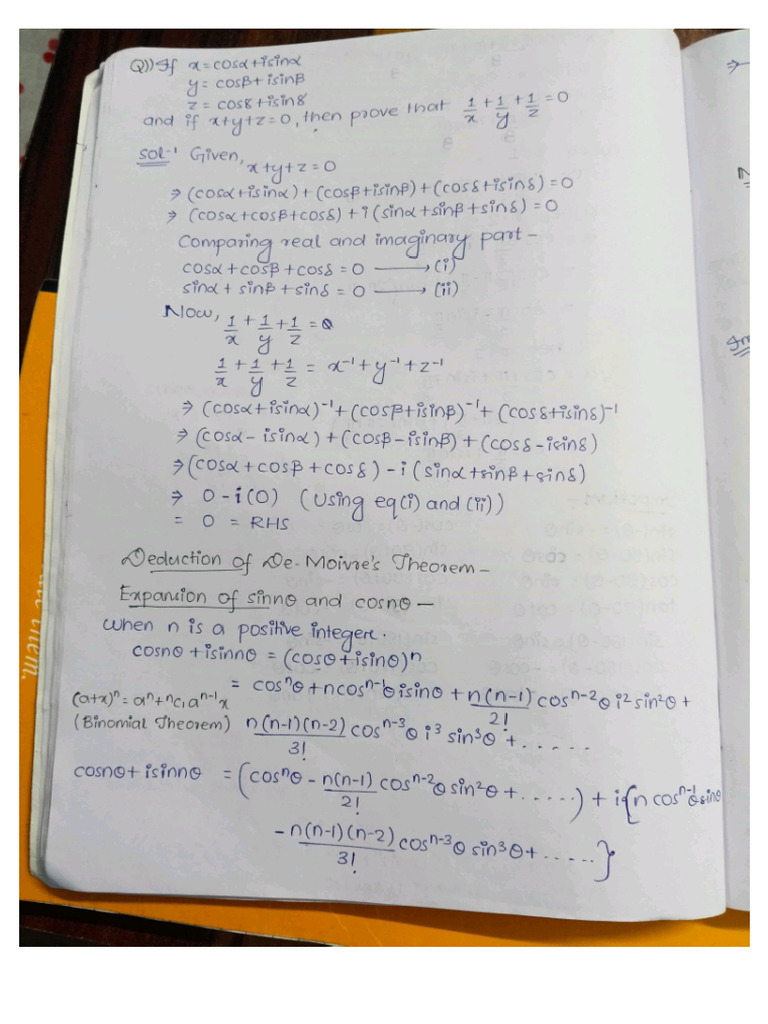 Q)) If x = cosα + isinα
y = cosβ + isinβ
z = cosδ + isinδ
and if x+y+z = 0, then prove that 1/x + 1/y + 1/z = 0
Sol-1 Given, x+y+z = 0
⇒ (cosα + isinα) + (cosβ + isinβ) + (cosδ + isinδ) = 0
⇒ (cosα + cosβ + cosδ) + i (sinα + sinβ + sinδ) = 0
Comparing real and imaginary part –
cosα + cosβ + cosδ = 0 ⟶ (i)
sinα + sinβ + sinδ = 0 ⟶ (ii)
Now, 1/x + 1/y + 1/z = 0
1/x + 1/y + 1/z = x⁻¹ + y⁻¹ + z⁻¹
⇒ (cosα + isinα)⁻¹ + (cosβ + isinβ)⁻¹ + (cosδ + isinδ)⁻¹
⇒ (cosα – isinα) + (cosβ – isinβ) + (cosδ – isinδ)
⇒ (cosα + cosβ + cosδ) – i (sinα + sinβ + sinδ)
⇒ 0 – i(0) (Using eq(i) and (ii))
= 0 = RHS
Deduction of De-Moivre's Theorem –
Expansion of sinnθ and cosnθ –
when n is a positive integer.
cosnθ + isinnθ = (cosθ + isinθ)ⁿ
= cosⁿθ + ncosⁿ⁻¹θ isinθ + n(n-1)/2! cosⁿ⁻²θ i² sin²θ +
(a+x)ⁿ = aⁿ + nc₁ aⁿ⁻¹x
(Binomial Theorem) n(n-1)(n-2)/3! cosⁿ⁻³θ i³ sin³θ + ......
cosnθ + isinnθ = (cosⁿθ – n(n-1)/2! cosⁿ⁻²θ sin²θ + .....) + i{n cosⁿ⁻¹θ sinθ
– n(n-1)(n-2)/3! cosⁿ⁻³θ sin³θ + .....}
them.